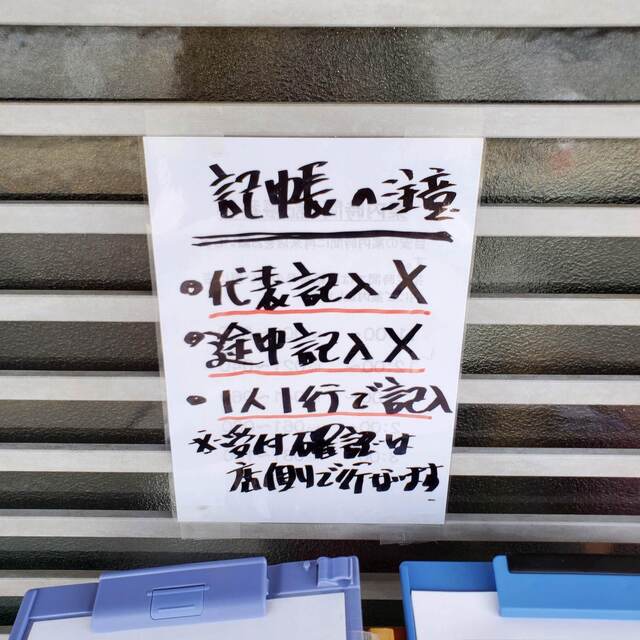 記帳の注意
・代表記入X
・途中記入X
・1人1行で記入
※受付確認は
店側で行います